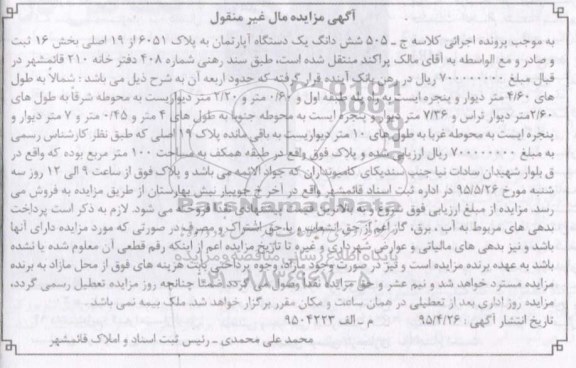 آگهی مزایده مال غیر منقول
به موجب پرونده اجرائی کلاسه ج ـ ۵۰۵ شش دانگ یک دستگاه آپارتمان به پلاک ۶۰۵۱ از ۱۹ اصلی بخش ۱۶ ثبت
و صادر و مع الواسطه به آقای مالک پراکند منتقل شده است، طبق سند رهنی شماره ۴۰۸ دفتر خانه ۲۱۰ قائمشهر در
قبال مبلغ ۷۰۰۰۰۰۰۰۰ ریال در رهن بانک آینده قرار گرفته که حدود اربعه آن به شرح ذیل می باشد: شمالاً به طول
های ۴/۶۰ متر دیوار و پنجره ایست به طبقه اول و ۰/۶۰ متر و ۲/۲۰ متر دیواریست به محوطه شرقاً به طول های
۲/۶۰متر دیوار تراس و ۷/۳۶ متر دیوار و پنجره ایست به محوطه جنوباً به طول های ۴ متر و ۰/۴۵ متر و ۷ متر دیوار و
پنجره ایست به محوطه غرباً به طول های ۱۰ متر دیواریست به باقی مانده پلاک ۱۹ اصلی که طبق نظر کارشناس رسمی
به مبلغ ۷۰۰۰۰۰۰۰۰ ریال ارزیابی شده و پلاک فوق واقع در طبقه همکف به مساحت ۱۰۰ متر مربع بوده که واقع در
ق بلوار شهیدان سادات نیا جنب سندیکای کامیونداران کد جواد الائمه می باشد و پلاک فوق از ساعت ۹ الی ۱۲ روز سه
شنبه مورخ ۹۵/۵/۲۶ در اداره ثبت اسناد قائمشهر واقع در آخر خ جویبار نبش بهارستان از طریق مزایده به فروش می
رسد. مزایده از مبلغ ارزیابی فوق شروع و به بالاترین قیمت پیشنهادی نقداً فروخته می شود. لازم به ذکر است پرداخت
بدهی های مربوط به آب، برق، گاز اعم از حق انشعاب و یا حق اشتراک و مصرف در صورتی که مورد مزایده دارای آنها
باشد و نیز بدهی های مالیاتی و عوارض شهرداری و غیره تا تاریخ مزایده اعم از اینکه رقم قطعی آن معلوم شده یا نشده
باشد به عهده برنده مزایده است و نیز در صورت وجود مازاد، وجوه پرداختی بابت هزینه های فوق از محل مازاد به برنده
مزایده مسترد خواهد شد و نیم عشر و حق مزایده نقداً وصول می گردد. ضمناً چنانچه روز مزایده تعطیل رسمی گردد،
مزایده روز اداری بعد از تعطیلی در همان ساعت و مکان مقرر برگزار خواهد شد. ملک بیمه نمی باشد.
تاریخ انتشار آگهی: ۹۵/۴/۲۶ م ـ الف ۹۵۰۴۲۲۳
محمد علی محمدی ـ رئیس ثبت اسناد و املاک قائمشهر
ParsNamadData
پایگاه اطلاع رسانی مناقصه و مزایده